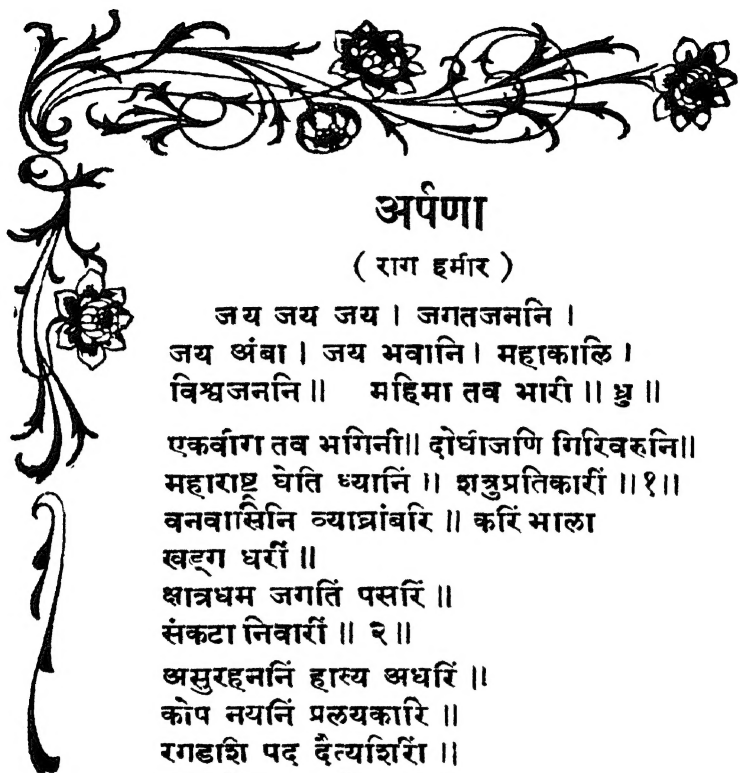 अर्पणा
( राग हमीर )
जय जय जय । जगतजननि ।
जय अंबा । जय भवानि । महाकालि ।
विश्वजननि ॥ महिमा तव भारी ॥ ध्रु ॥
एकवीरा तव भगिनी॥ दोघीजणि गिरिवरुनि॥
महाराष्ट्र घेति ध्यानिं ॥ शत्रुप्रतिकारीं ॥१॥
वनवासिनि व्याघ्रांबरि ॥ करिं भाला
खड्ग धरीं ॥
क्षात्रधम जगतिं पसरिं ॥
संकटा निवारीं ॥ २॥
असुरहननिं हास्य अधरिं ॥
कोप नयनिं प्रलयकारि ॥
रगडाशि पद दैत्यशिरीं ॥